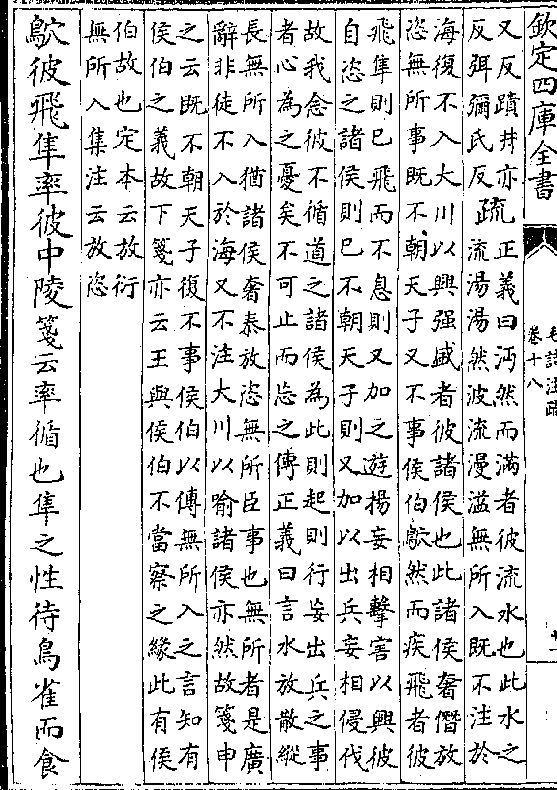 欽定四庫全書
卷十八
又反蹟井亦
反弭彌氏反
疏
正義曰沔然而滿者彼流水也此水之
流湯湯然波流漫溢無所入既不注於
海復不入大川以興强盛者彼諸侯也此諸侯奢僭放
恣無所事既不朝天子又不事侯伯鴥然而疾飛者彼
飛隼則已飛而不息則又加之遊揚妄相擊害以興彼
自恣之諸侯則已不朝天子則又加以出兵妄相侵伐
故我念彼不循道之諸侯為此則起則行妄出兵之事
者心為之憂矣不可止而忘之傳正義曰言水放散縱
長無所入猶諸侯奢泰放恣無所臣事也無所者是廣
辭非徒不入於海又不注大川以喻諸侯亦然故箋申
之云既不朝天子復不事侯伯以傳無所入之言知有
侯伯之義故下箋亦云王與侯伯不當察之緣此有侯
伯故也定本云放衍
無所入集注云放恣
鴥彼飛隼率彼中陵箋云率循也隼之性待鳥雀而食